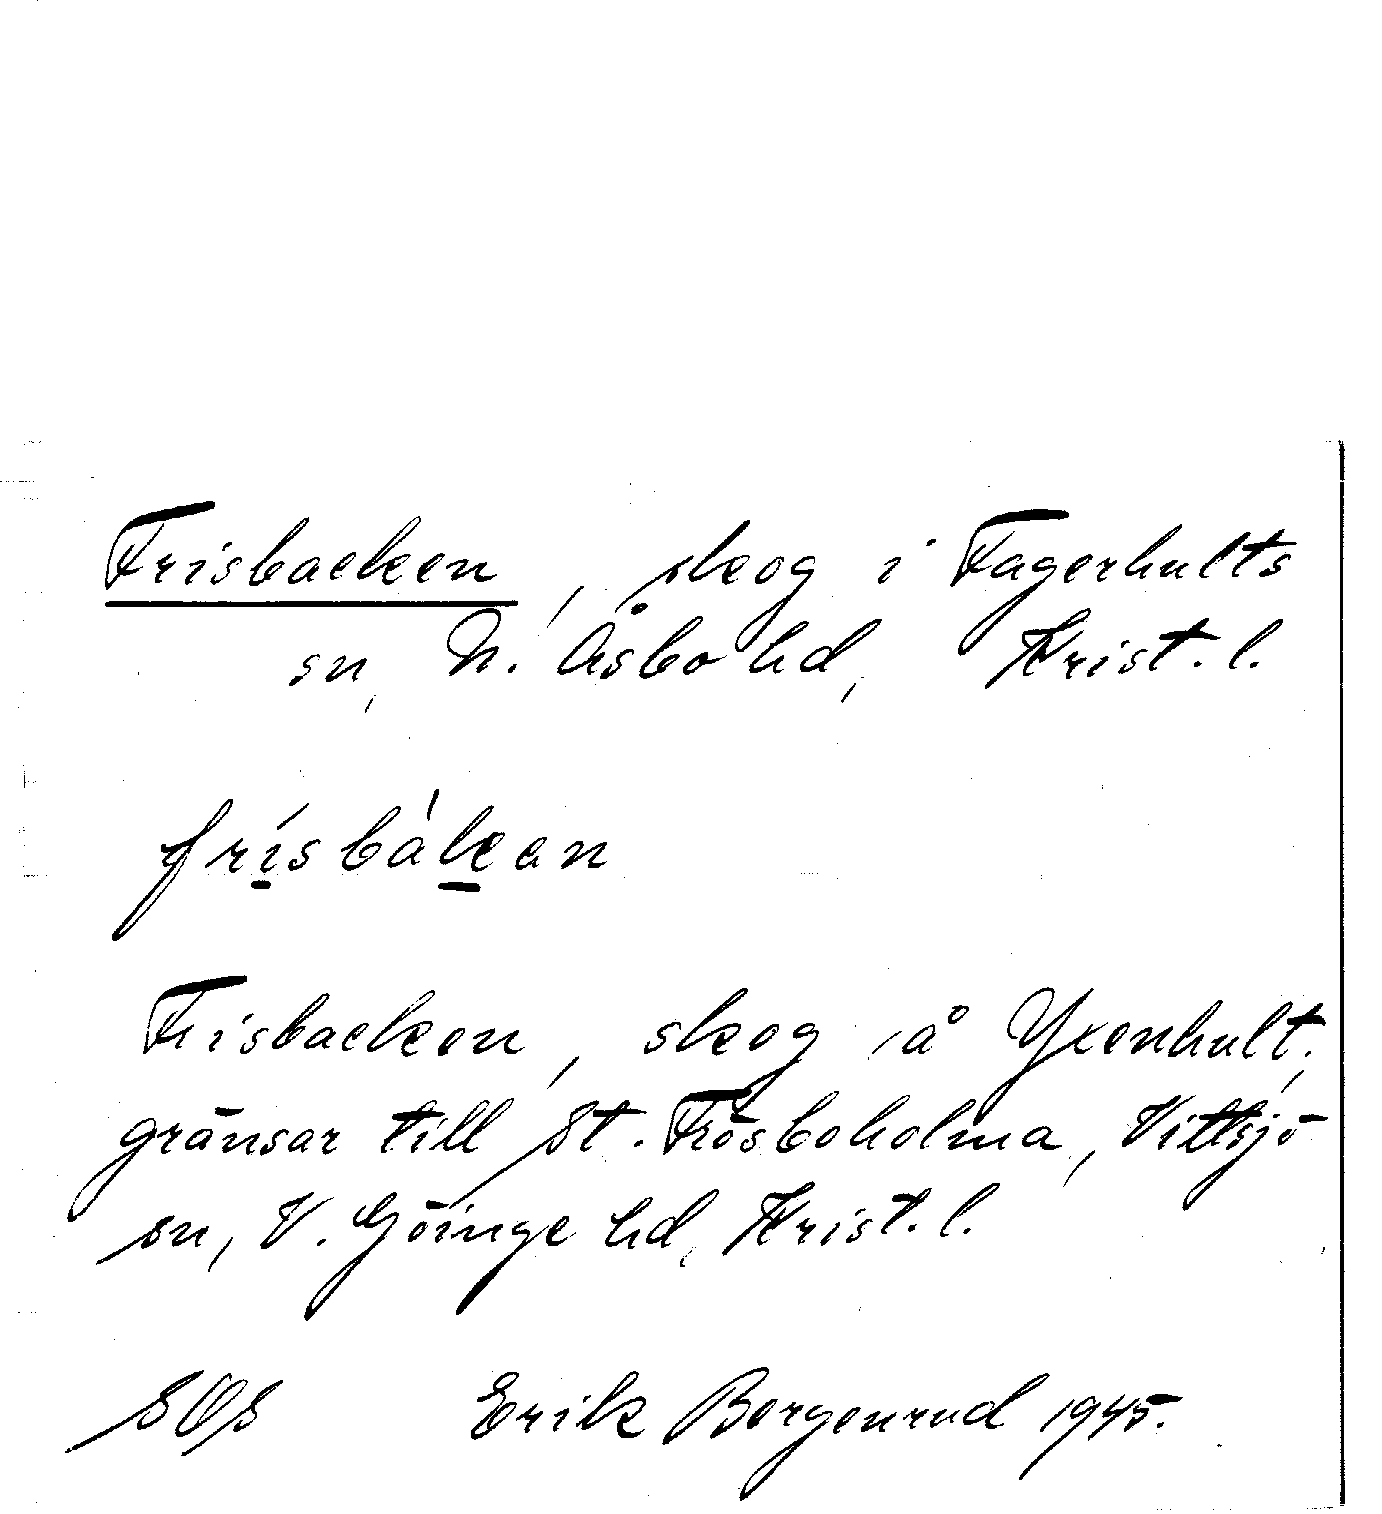 Frisbacken, skog i Fagerhults
sn, N. Åsbo hd, Krist. l.
frísbákan
Frisbacken, skog å Yxenhult,
gränsar till St. Frösboholma, Vittsjö
sn, V. Göinge hd, Krist. l.
SOS Erik Borgenrud 1945.